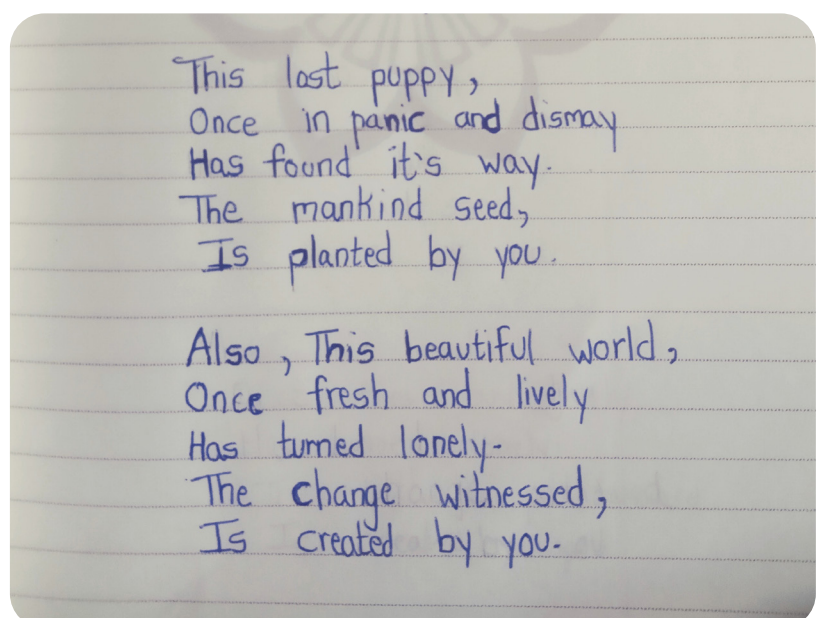 This lost puppy,
Once in panic and dismay
Has found it's way.
The mankind seed,
Is planted by you.
Also, This beautiful world,
Once fresh and lively
Has turned lonely.
The change witnessed,
Is created by you.